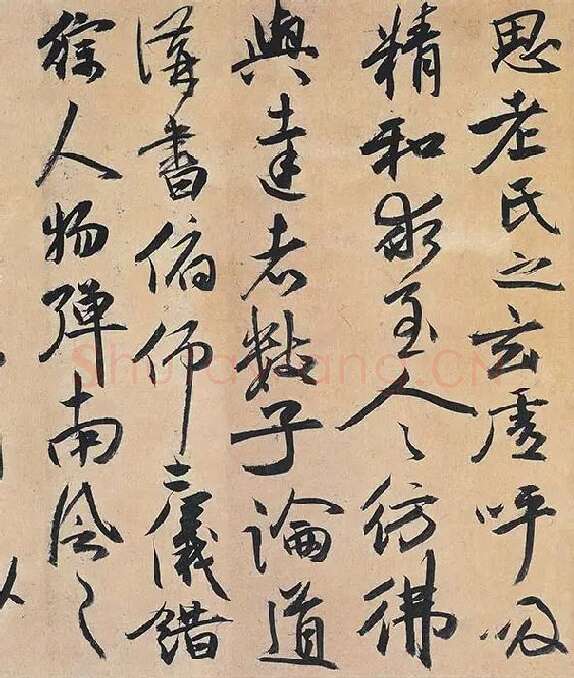 思老氏之玄虛呼吸
精和求至人之彷彿
與達者數子論道
講書俯仰二儀錯
綜人物彈南風之
Shufawang.CN